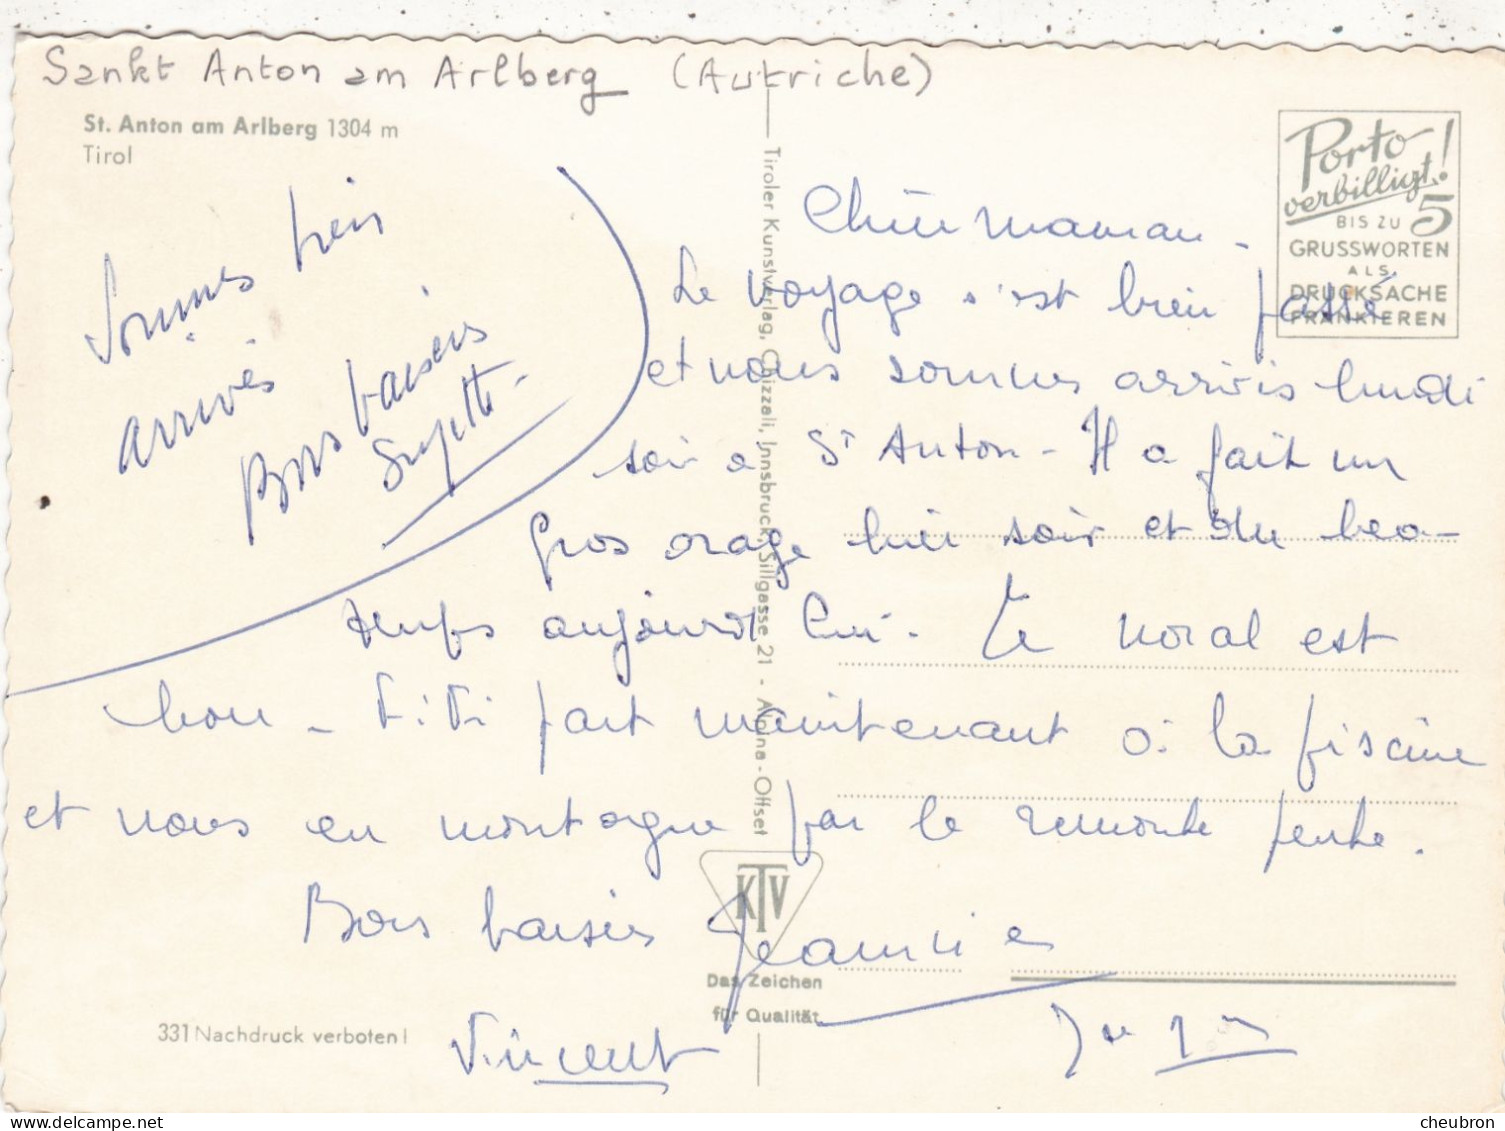 Sankt Anton am Arlberg (Autriche)
St. Anton am Arlberg 1304 m
Tirol
Sommes bien
arrivés
Bons baisers
Porto
verbilligt!
BIS ZU 5
GRUSSWORTEN
ALS
DRUCKSACHE
FRANKIEREN
Chère Maman -
Le voyage s'est bien passé
et nous sommes arrivés lundi
soir à St Anton - Il a fait un
gros orage hier soir et du beau
temps aujourd'hui. Le moral est
bon - Titi part maintenant à la piscine
et nous en montagne par le remonte pente.
Bons baisers Jeannie
Vincent
Tiroler Kunstverlag, Chizzali, Innsbruck, Sillgasse 21 - Alpina-Offset
KTV
Das Zeichen
für Qualität
331 Nachdruck verboten!
cheubron